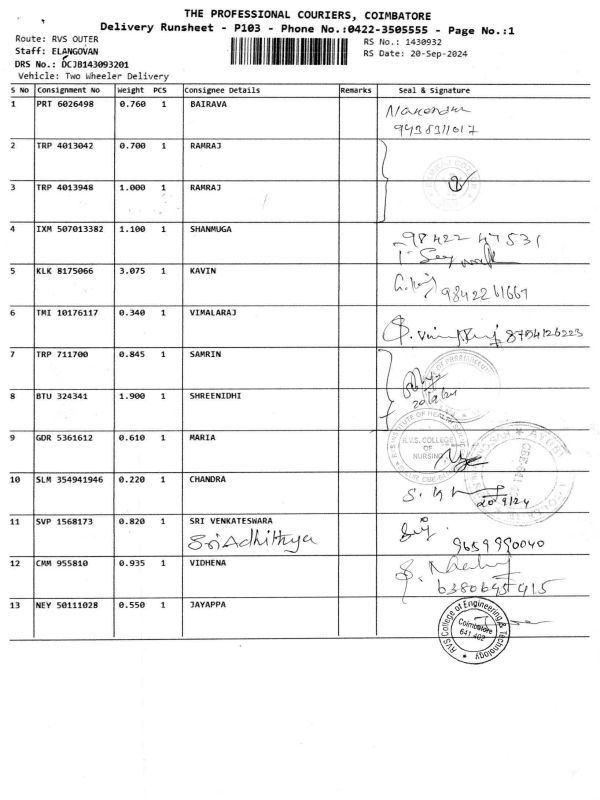 THE PROFESSIONAL COURIERS, COIMBATORE
Delivery Runsheet - P103 - Phone No.:0422-3505555 - Page No.:1
Route: RVS OUTER
RS No.: 1430932
Staff: ELANGOVAN
RS Date: 20-Sep-2024
DRS No.: DCJB143093201
Vehicle: Two Wheeler Delivery
S No Consignment No Weight PCS Consignee Details Remarks Seal & Signature
1 PRT 6026498 0.760 1 BAIRAVA
2 TRP 4013042 0.700 1 RAMRAJ
3 TRP 4013948 1.000 1 RAMRAJ
4 IXM 507013382 1.100 1 SHANMUGA
98422 47531
5 KLK 8175066 3.075 1 KAVIN
9842261667
6 TMI 10176117 0.340 1 VIMALARAJ
8754126223
7 TRP 711700 0.845 1 SAMRIN
20/9/24
8 BTU 324341 1.900 1 SHREENIDHI
9 GDR 5361612 0.610 1 MARIA
R.V.S. COLLEGE
OF
NURSING
10 SLM 354941946 0.220 1 CHANDRA
20/9/24
11 SVP 1568173 0.820 1 SRI VENKATESWARA
Sri Adhithya
9659990040
12 CMM 955810 0.935 1 VIDHENA
6380645415
13 NEY 50111028 0.550 1 JAYAPPA
RVS College of Engineering & Technology
Coimbatore
641 402